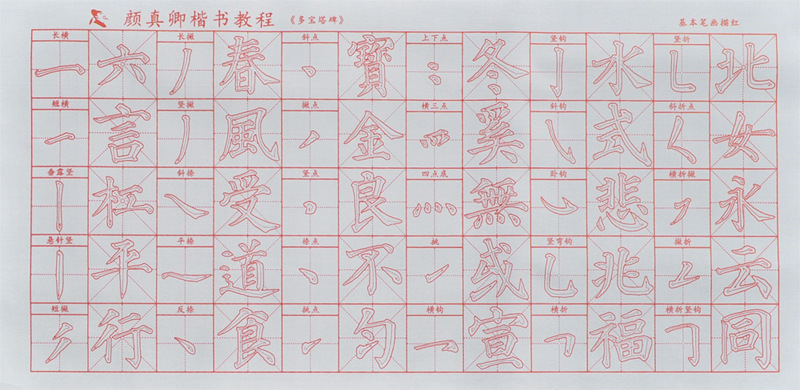 颜真卿楷书教程 《多宝塔碑》 基本笔画描红
长横 六 长撇 春 斜点 寶 上下点 冬 竖钩 水 竖折 北
短横 言 竖撇 風 撇点 金 横三点 奚 斜钩 式 斜折点 女
垂露竖 極 斜捺 受 竖点 良 四点底 無 卧钩 悲 横折撇 永
悬针竖 平 平捺 道 捺点 不 挑 或 竖弯钩 兆 撇折 云
短撇 行 反捺 食 挑点 勻 横钩 宣 横折 福 横折竖钩 同